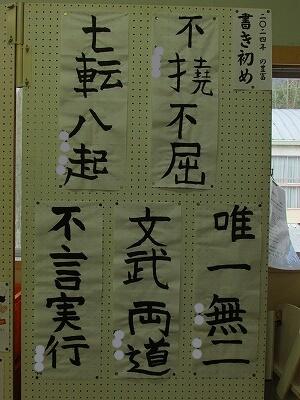 二〇二四年 の豊富
書き初め
不撓不屈
七転八起
唯一無二
文武両道
不言実行